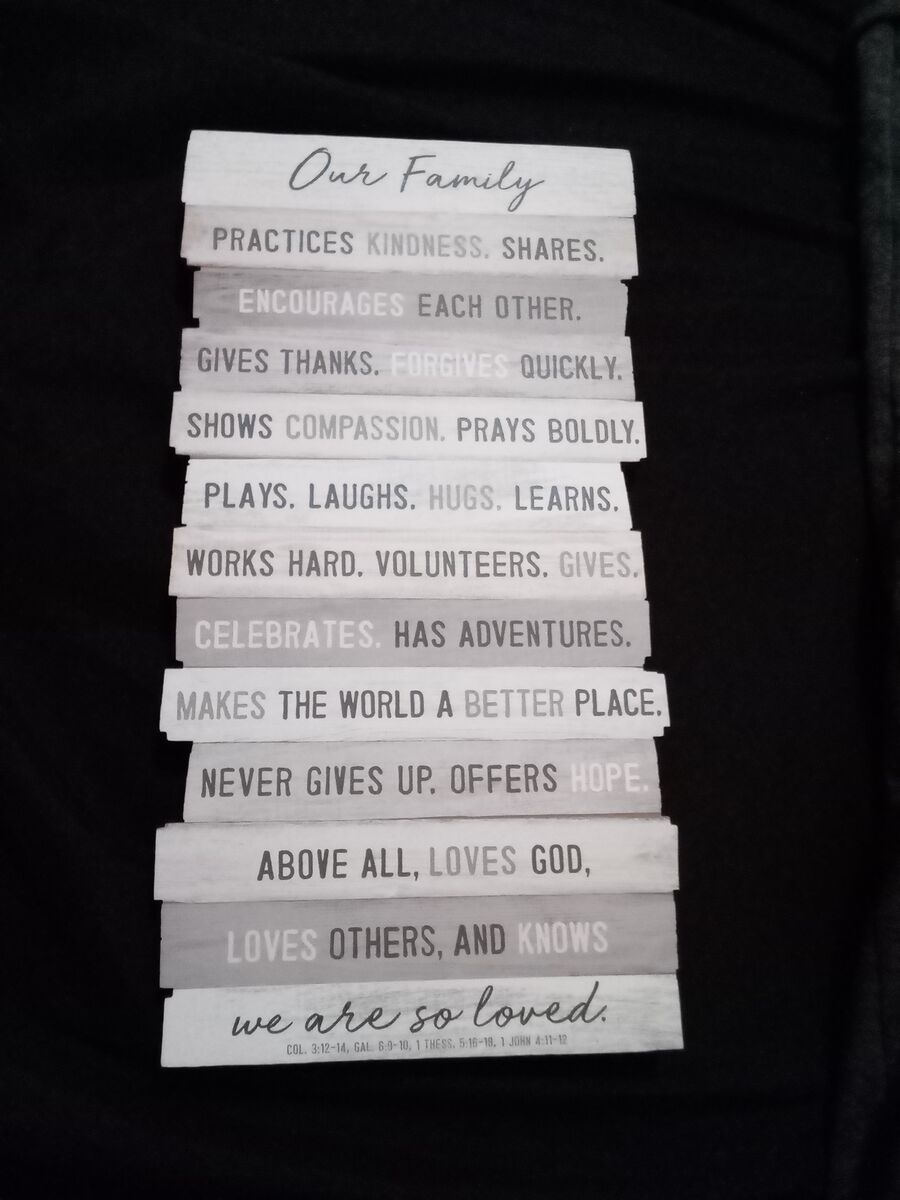 Our Family
PRACTICES KINDNESS. SHARES.
ENCOURAGES EACH OTHER.
GIVES THANKS. FORGIVES QUICKLY.
SHOWS COMPASSION. PRAYS BOLDLY.
PLAYS. LAUGHS. HUGS. LEARNS.
WORKS HARD. VOLUNTEERS. GIVES.
CELEBRATES. HAS ADVENTURES.
MAKES THE WORLD A BETTER PLACE.
NEVER GIVES UP. OFFERS HOPE.
ABOVE ALL, LOVES GOD,
LOVES OTHERS, AND KNOWS
we are so loved.
COL. 3:12-14, GAL. 6:9-10, 1 THESS. 5:16-18, 1 JOHN 4:11-12